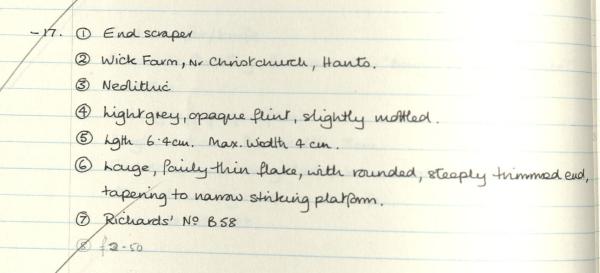 -17. ① End scraper
② Wick Farm, Nr Christchurch, Hants.
③ Neolithic
④ Light grey, opaque flint, slightly mottled.
⑤ Lgth 6.4cm. Max. Width 4 cm.
⑥ Large, fairly thin flake, with rounded, steeply trimmed end,
tapering to narrow striking platform.
⑦ Richards' No B58
⑧ £2-50